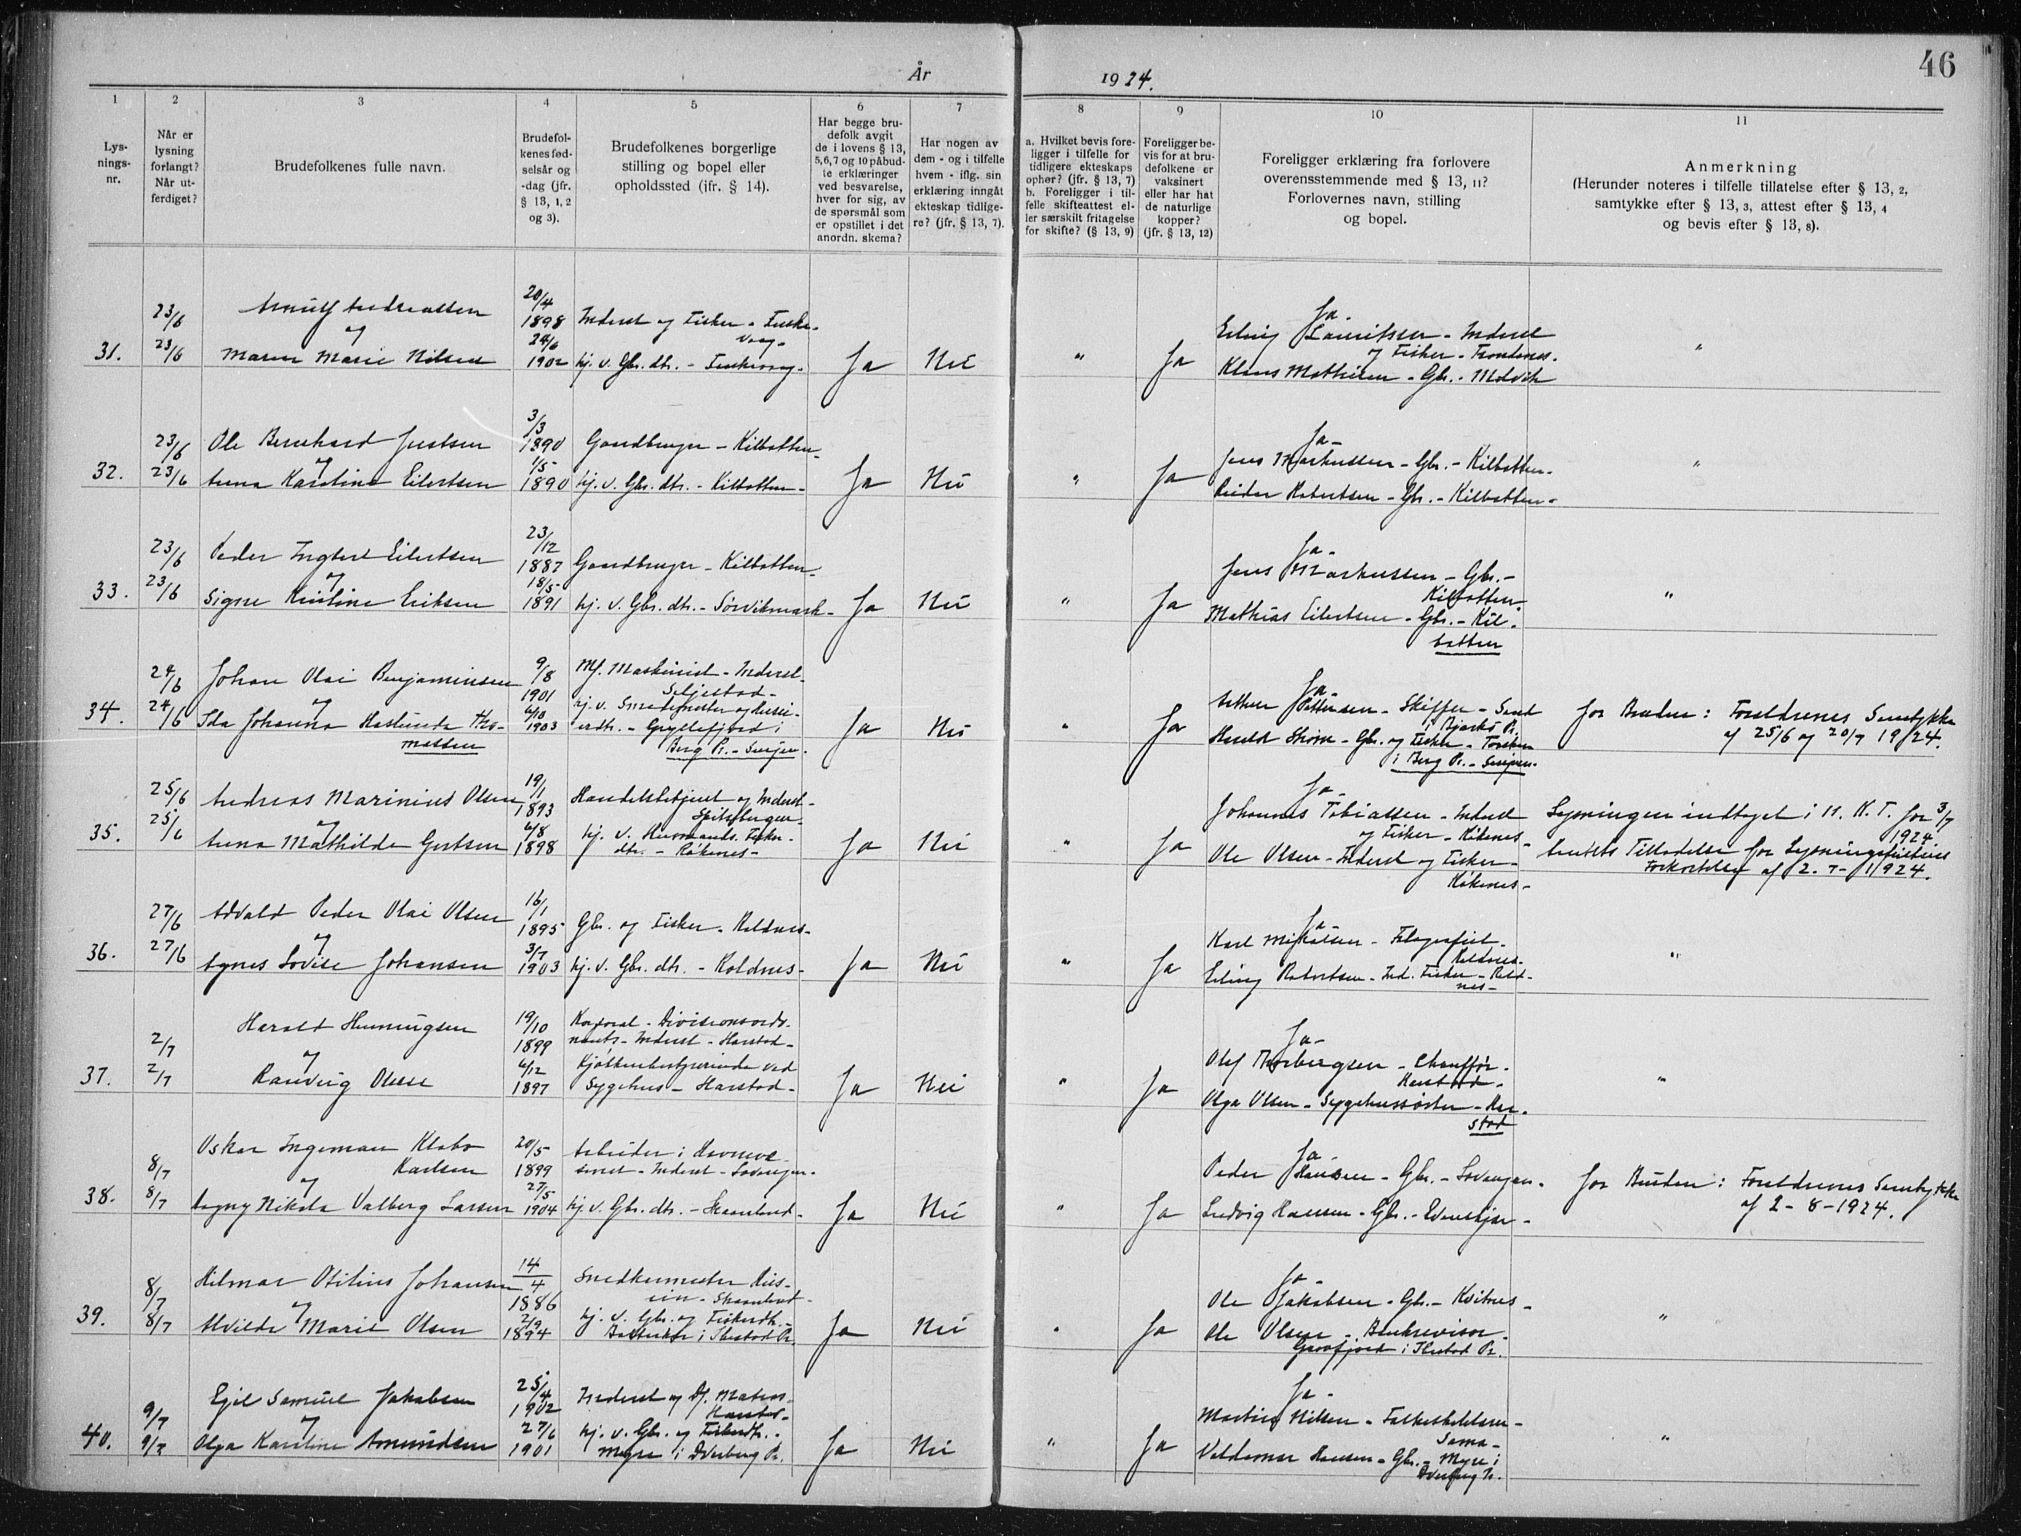 46
År 1924.
1 2 3 4 5 6 7 8 9 10 11
Lys-
nings-
nr.
Når er
lysning
forlangt?
Når ut-
ferdiget?
Brudefolkenes fulle navn.
Brudefol-
kenes fød-
selsår og
-dag (jfr.
§ 13, 1, 2
og 3).
Brudefolkenes borgerlige
stilling og bopel eller
opholdssted (jfr. § 14).
Har begge bru-
defolk avgit
de i lovens § 13,
5,6,7 og 10 påbud-
te erklæringer
ved besvarelse,
hver for sig, av
de spørsmål som
er opstillet i det
anordn. skema?
Har nogen av
dem - og i tilfelle
hvem - iflg. sin
erklæring inngått
ekteskap tidlige-
re? (jfr. § 13, 7).
a. Hvilket bevis fore-
ligger i tilfelle for
tidligere ekteskaps
ophør? (jfr. § 13, 7)
b. Foreligger i til-
felle skifteattest el-
ler særskilt fritagelse
for skifte? (§ 13, 9)
Foreligger be-
vis for at bru-
defolkene er
vaksinert
eller har hat
de naturlige
kopper?
(jfr. § 13, 12)
Foreligger erklæring fra forlovere
overensstemmende med § 13, 11?
Forlovernes navn, stilling
og bopel.
Anmerkning
(Herunder noteres i tilfelle tillatelse efter § 13, 2,
samtykke efter § 13, 3, attest efter § 13, 4
og bevis efter § 13, 8).
31.
23/6
23/6
Arnulf Andreassen
og
Maren Marie Nilsen
20/4
1898
24/6
1902
Inderst og Fisker - Fuske-
vaag-
hj. v. Gbr. dtr. - Fuskevaag-
Ja Nei " Ja
Ja-
Erling Lauritsen - Inderst
og Fisker - Trondenes-
Klaus Mathisen - Gbr. - Melvik
"
32.
23/6
23/6
Ole Bernhard Justsen
og
Anna Karoline Eilertsen
3/3
1890
1/5-
1890
Gaardbruger - Kilbotten-
hj. v. Gbr. dtr. - Kilbotten-
Ja Nei " Ja
Ja-
Jens Markussen - Gbr. - Kilbotten-
Reidar Robertsen - Gbr. - Kilbotten-
"
33.
23/6
23/6
Peder Ingbert Eilertsen
og
Signe Kristine Eriksen
23/12
1887
18/5-
1891
Gaardbruger - Kilbotten-
hj. v. Gbr. dtr. - Sørvikmark-
Ja Nei " Ja
Ja-
Jens Markussen - Gbr. -
Kilbotten-
Mathias Eilertsen - Gbr. - Kil-
botten
"
34.
24/6
24/6
Johan Olai Benjaminsen
og
Ida Johanna Haslunda Tho-
massen
9/8
1901
6/10
1903
Mf. Maskinist - Inderst-
Seljestad-
hj. v. Smedmester og Hussi-
erdtr. - Gryllefjord i
Berg Pr. - Senjen-
Ja Nei " Ja
Ja-
Arthur Pettersen - Skipper - Sand
i Bjarkø Pr.
Harald Strøm - Gbr. og Fisker - Torsken
i Berg Pr. - Senjen-
for Bruden: Forældrenes Samtykke
af 25/6 og 20/7 1924.
35.
25/6
25/6
Andreas Marinius Olsen
og
Anna Mathilde Gertsen
19/1
1893
6/8
1898
Handelsbetjent og Inderst-
Spitsbergen-
hj. v. Husmands. Fisker-
dtr. - Røkenes-
Ja Nei " Ja
Ja-
Johannes Tobiassen - Inderst
og Fisker - Røkenes-
Ole Olsen - Inderst og Fisker -
Røkenes-
Lysningen indtaget i H. K. T. for 3/7
1924
Amtets Tilladelse for Lysningsfristens
Forkortelse af 2-7-1924.
36.
27/6
27/6
Advald Peder Olai Olsen
og
Agnes Lovise Johansen
16/1
1895
3/7
1903
Gbr. og Fisker - Roldnes-
hj. v. Gbr. dtr. - Roldnes-
Ja Nei " Ja
Ja-
Karl Mikalsen - Telegrafist-
Roldnes-
Erling Robertsen - Ind. Fisker - Rold-
nes-
"
37.
2/7
2/7
Harald Henningsen
og
Randvig Olsen
19/10
1899
6/12
1897
Korporal - Divisionsords-
nants - Inderst - Harstad-
Kjøkkenbestyrerinde ved
Sygehus - Harstad-
Ja Nei " Ja
Ja-
Olef Thorbergsen - Chauffør-
Harstad-
Olga Olsen - Sygehussøster - Har-
stad
"
38.
8/7
8/7
Oskar Ingeman Klabo
Karlsen
og
Dagny Nikola Valberg Larsen
20/5
1899
27/5
1904
Arbeider i Havneve-
senet - Inderst - Lovangen-
hj. v. Gbr. dtr. - Skaanland-
Ja Nei " Ja
Ja-
Peder Hansen - Gbr. - Lovangen-
Ludvig Hansen - Gbr. - Evenskjær -
for Bruden: Forældrenes Samtykke
af 2-8-1924.
39.
8/7
8/7
Hilmar Otilius Johansen
og
Alvilde Marie Olsen
14/4
1886
2/9
1894
Snedkermester Hus-
eier - Skaanland-
hj. v. Gbr. og Fiskerdtr. -
i Ibestad Pr.
Ja Nei " Ja
Ja-
Ole Jakobsen - Gbr. - Kvitnes-
Ole Olsen - Bankrevisor-
Gravfjord i Ibestad Pr.
"
40.
9/7
9/7
Egil Samuel Jakobsen
og
Olga Karoline Amundsen
25/4
1902
27/6
1901
Inderst og Df. Matros-
Harstad-
hj. v. Gbr. og Fiskerdtr. -
Myre i Dverberg Pr.
Ja Nei " Ja
Ja-
Martin Nilsen -
Sama-
Valdemar Hansen - Gbr. - Myre i
Dverberg Pr.
"